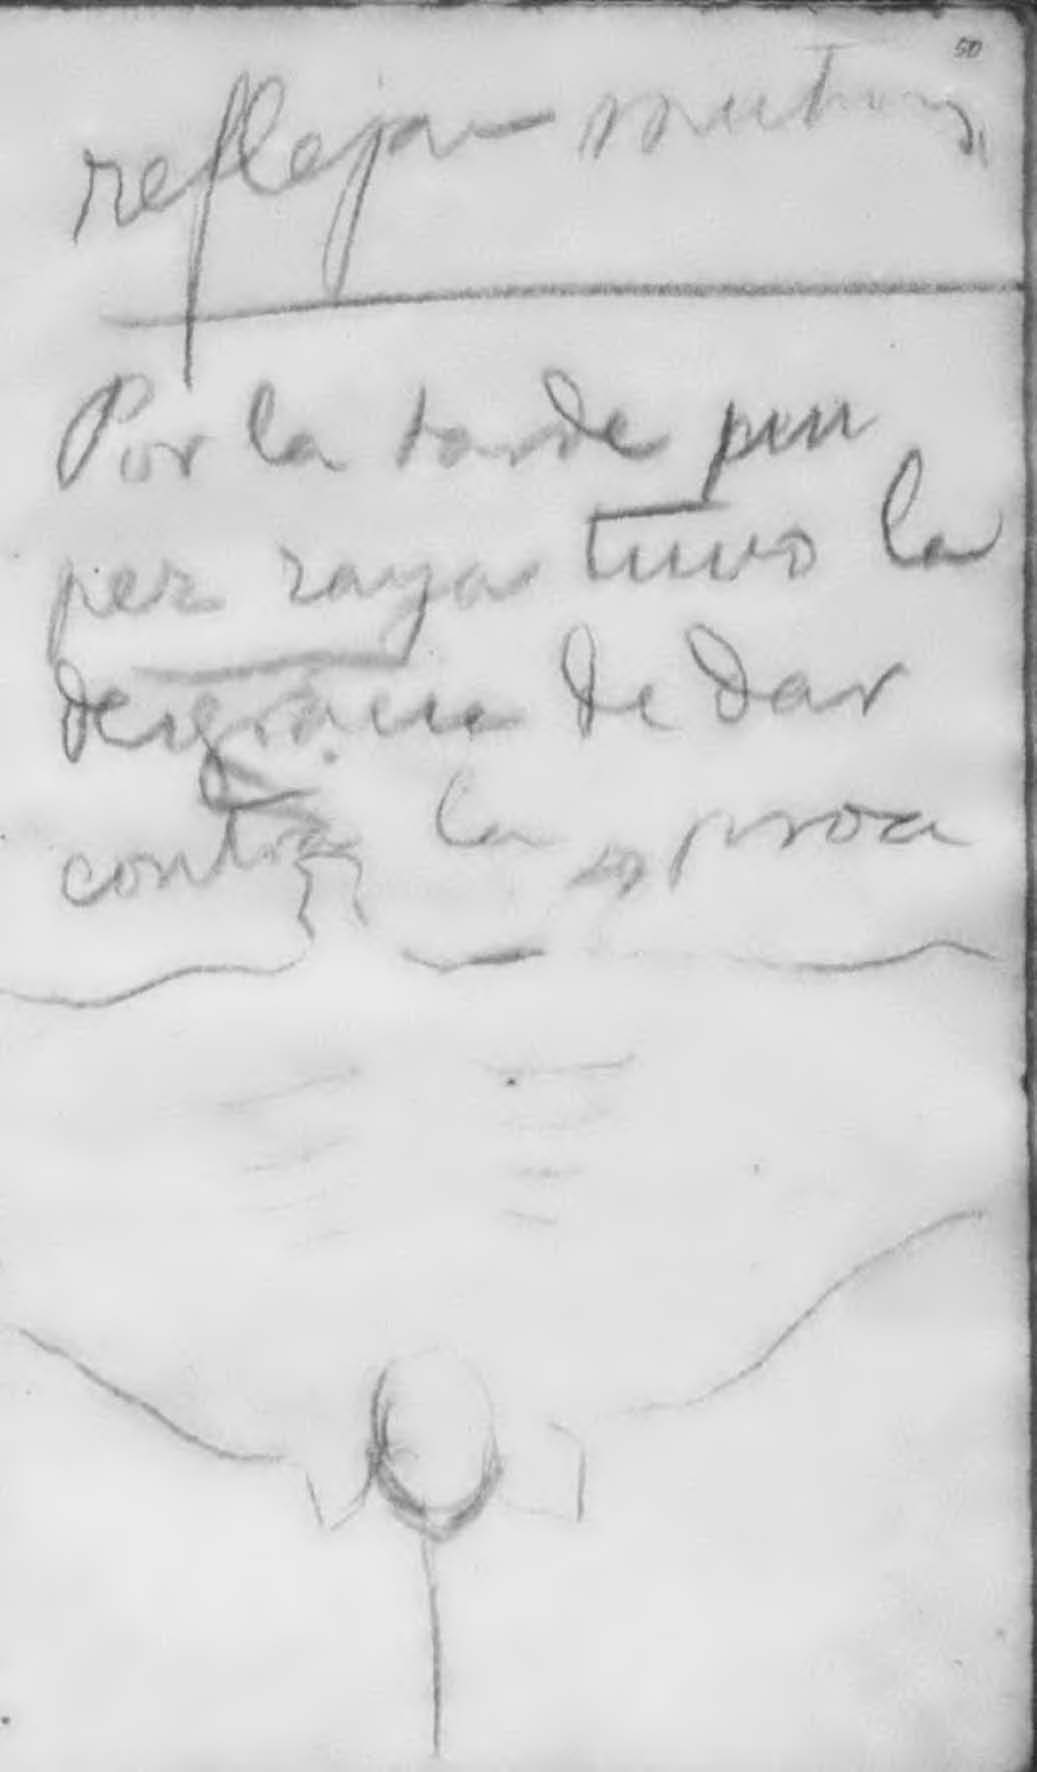 50
reflejan
Por la tarde un
pez raya tuvo la
desgracia de dar
contra la proa